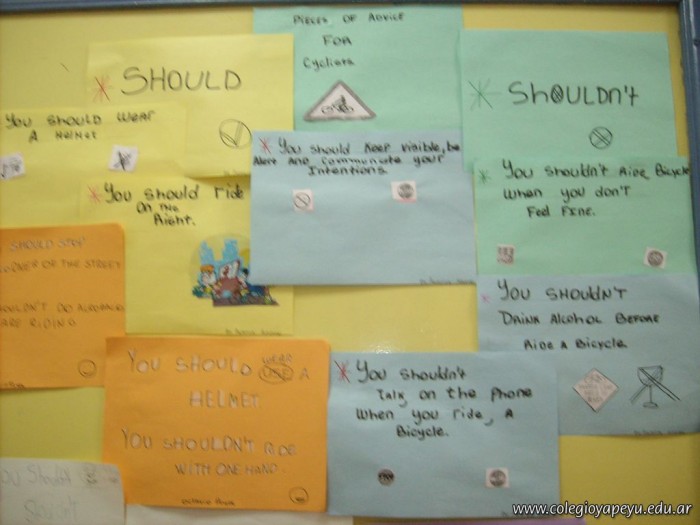 PIECES OF ADVICE
FOR
Cyclists
SHOULD
SHOULDn't
YOU SHOULD WEAR
A HELMET
You should keep visible, be
Alert AND communicate your
Intentions
You SHOULD RIDE
ON THE
Right.
You shouldn't Ride Bicycle
when you don't
Feel Fine.
SHOULD STOP
CORNER OF THE STREET
SHOULDN'T DO ACROBACIES
ARE RIDING
YOU SHOULDN'T
DRINK ALCOHOL BEFORE
RIDE A BICYCLE.
YOU SHOULD WEAR USE A
HELMET
YOU SHOULDN'T RIDE
WITH ONE HAND.
You shouldn't
Talk on the phone
When you ride, A
Bicycle.
You Should
www.colegioyapeyu.edu.ar